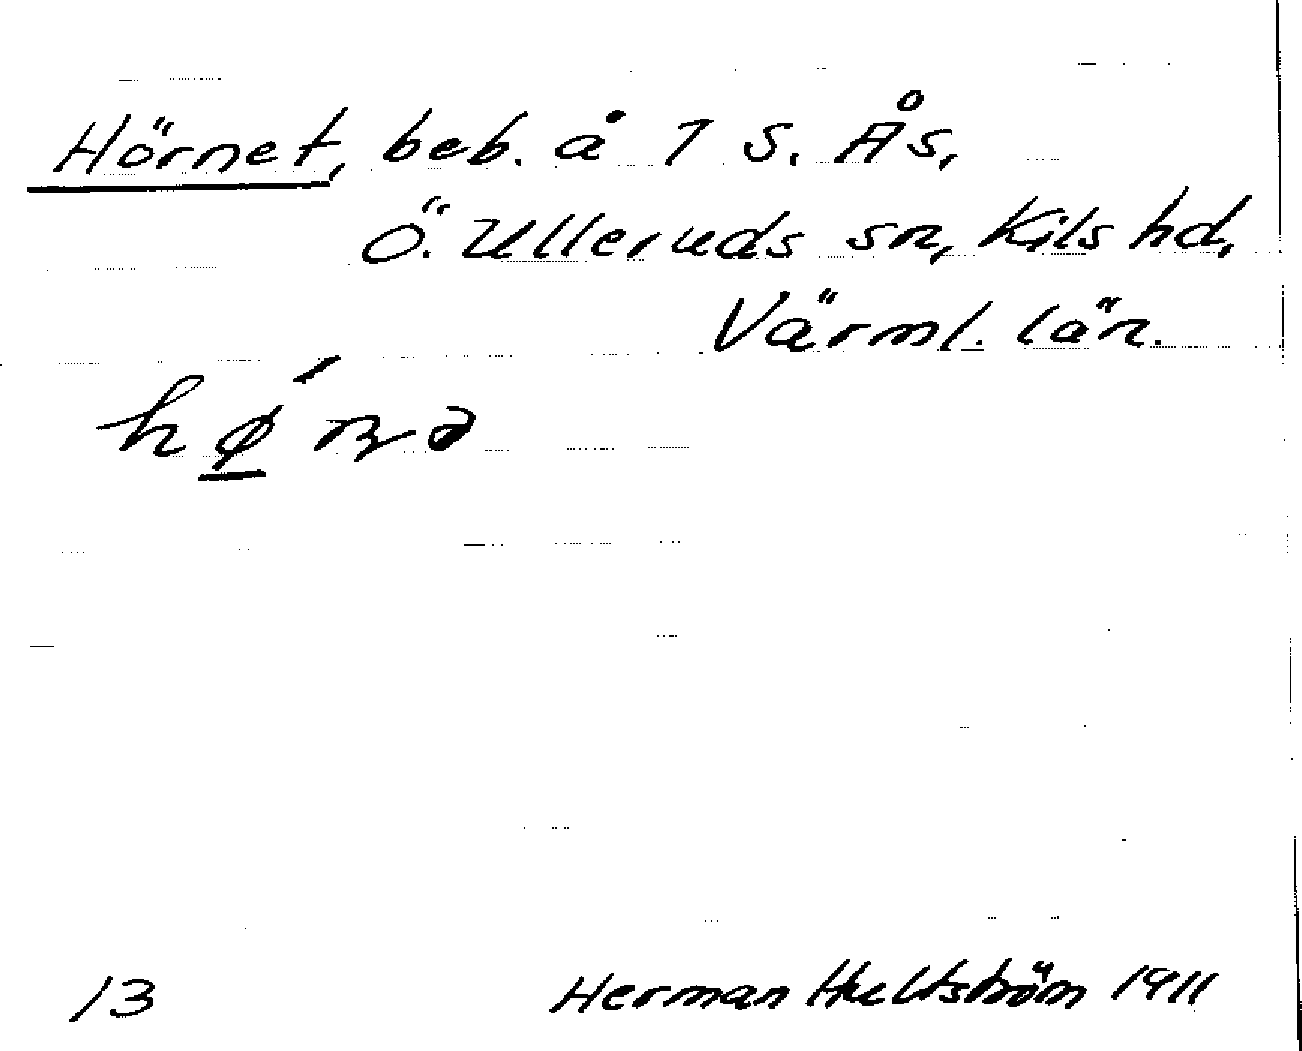 Hörnet, beb. å 1 S. Ås,
Ö. Ulleruds sn, Kils hd,
Värml. län.
hǿ̱ɳə
13 Herman Hultström 1911